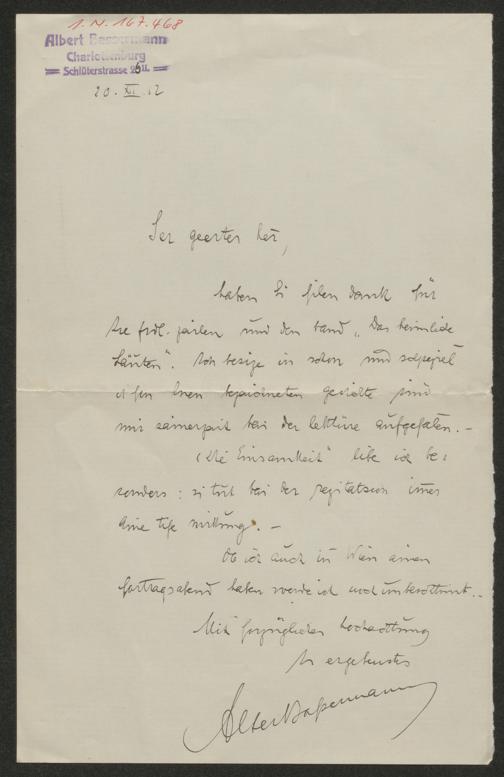 I. N. 167.468
Albert Bassermann
Charlottenburg
Schlüterstrasse 26 II.
20. XI. 12
Ser geerter her,
haben Si filen dank für
Ire frdl. zeilen und den band „Das heimliche
Läuten“. Ich besize in schon und
di fon Inen bezeichneten gedichte sind
mir seinerzeit bei der lektüre aufgefalen. –
„Die Einsamkeit“ libe ich be-
sonders: si tut bei der rezitazion imer
eine tife wirkung. –
Ob ich auch in Wien einen
fortragsabend halten werde ist noch unbestimt. –
Mit forzüglicher hochachtung
Ir ergebenster
Albert Bassermann